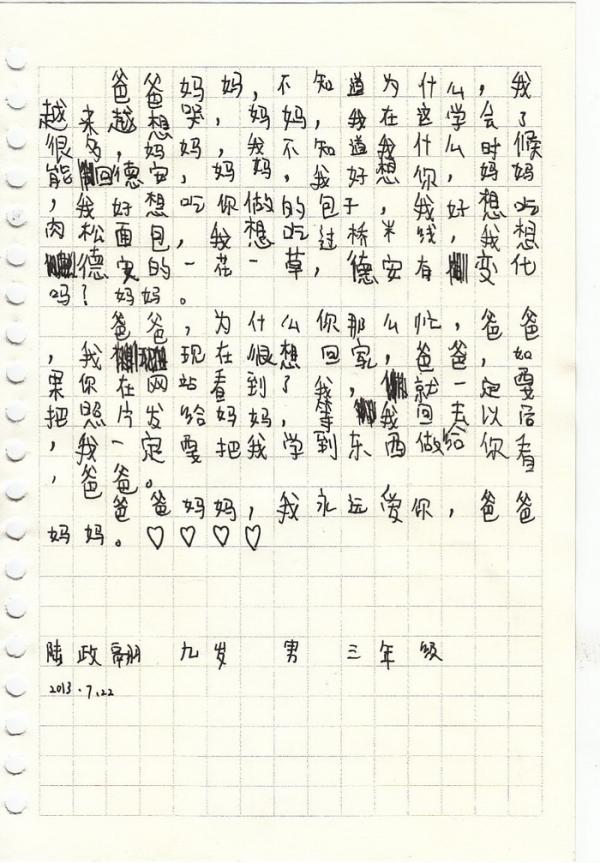 爸爸妈妈,不知道为什么,我
越来越想哭,妈妈,我在这学会了
很多,妈妈,我不知道我什么时候
能回德安,妈妈,我好想你,妈妈
,我好想吃你做的包子,我好想吃
肉松面包,我想吃过桥米线,我想
德安的一花一草,德安有变化
吗?妈妈。
爸爸,为什么你那么忙,爸爸
,我现在很想回家,爸爸,如
果你在网站看到了我,就一定要
把照片发给妈妈,等我回去以后
,我一定要把我学到东西做给你看
,爸爸。
爸爸妈妈,我永远爱你,爸爸
妈妈。♡♡♡♡
陆政翮 九岁 男 三年级
2013.7.22